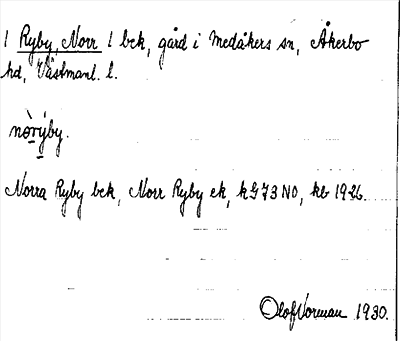 1 Ryby, Norr 1 bek, gård i Medåkers sn, Åkerbo
hd, Västmanl. l.
nò̱rý̱by.
Norra Ryby bek, Norr Ryby ek, kG 73 NO, kb 1926.
Olof Norman 1930.